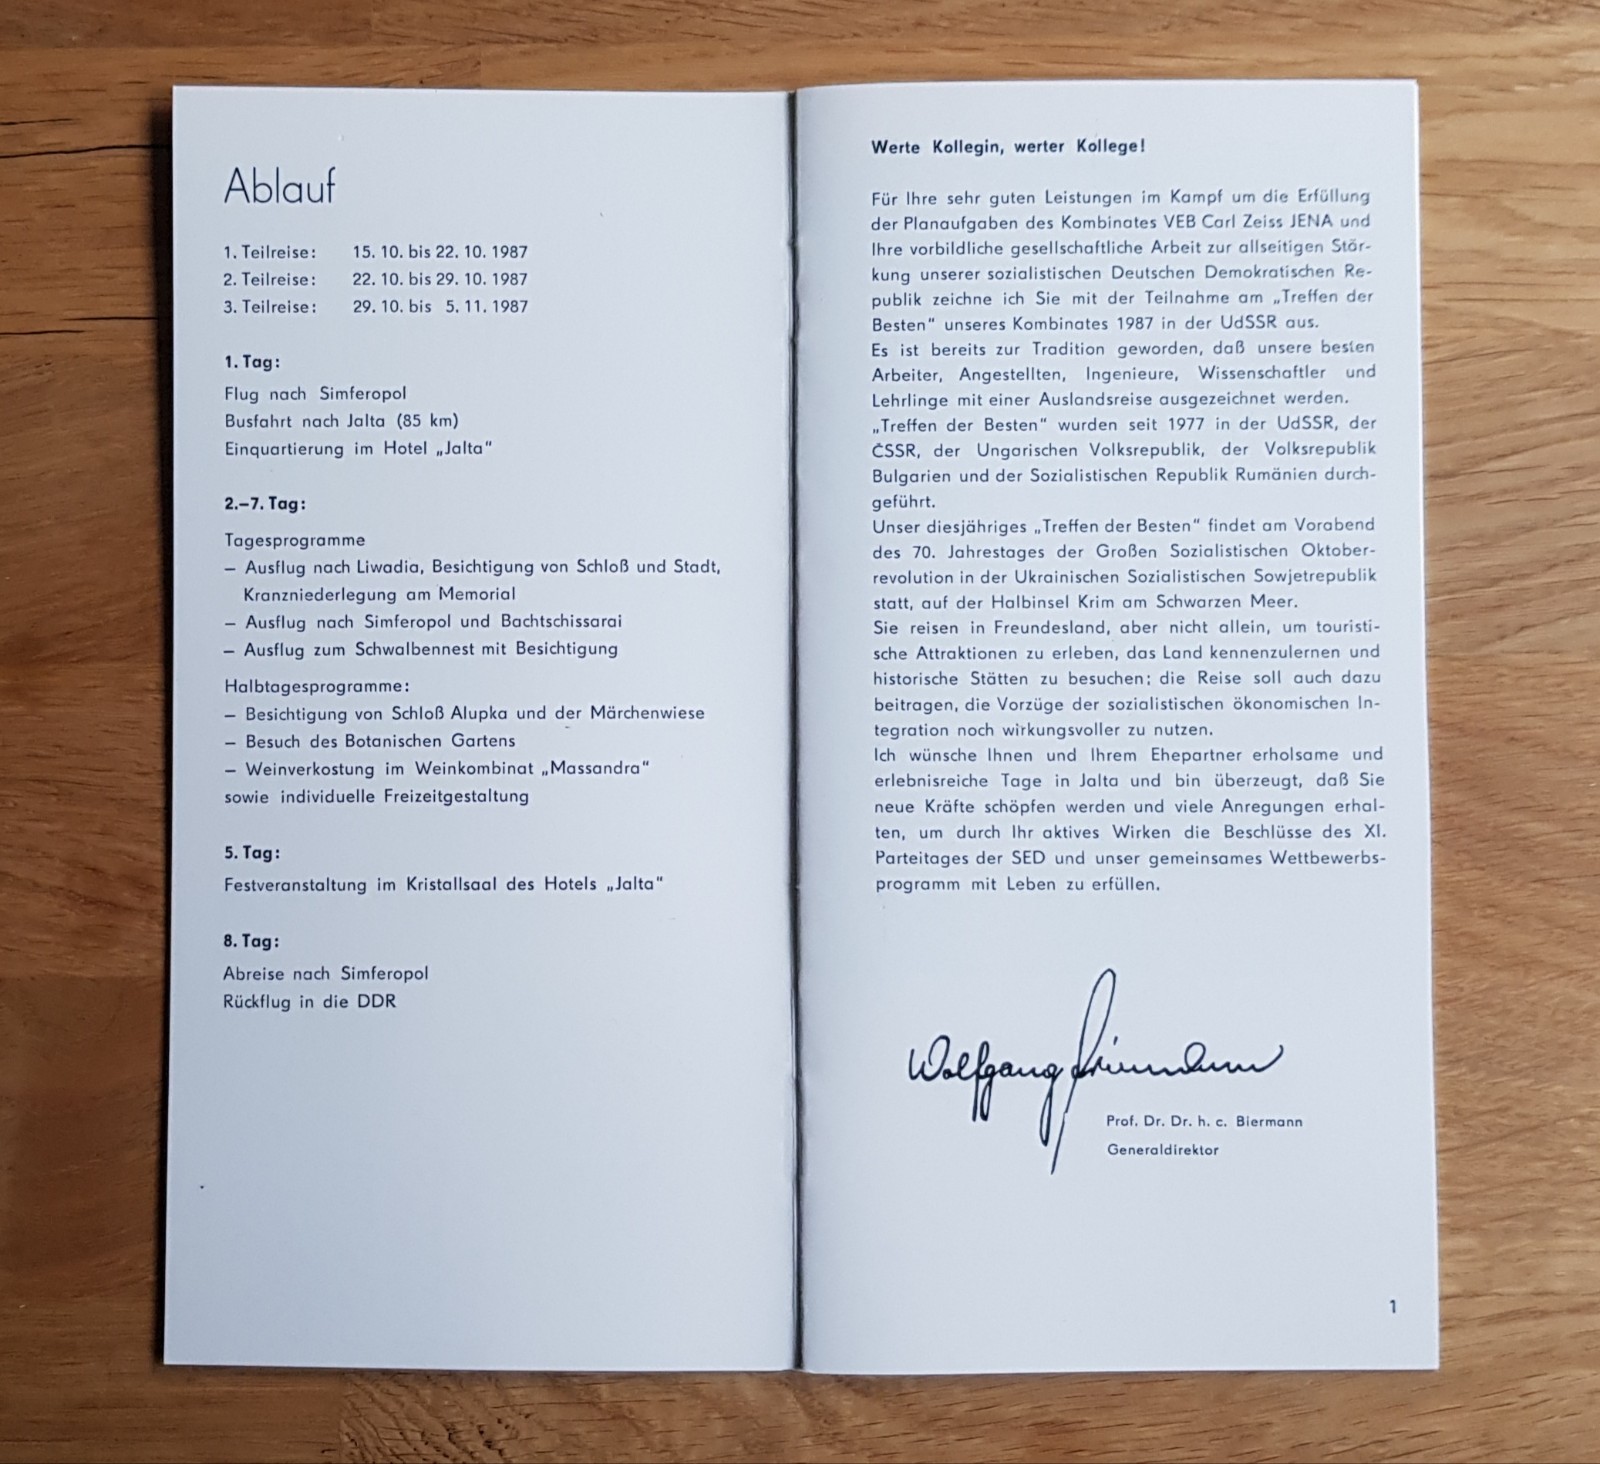 Ablauf
1. Teilreise: 15. 10. bis 22. 10. 1987
2. Teilreise: 22. 10. bis 29. 10. 1987
3. Teilreise: 29. 10. bis 5. 11. 1987
1. Tag:
Flug nach Simferopol
Busfahrt nach Jalta (85 km)
Einquartierung im Hotel „Jalta“
2.–7. Tag:
Tagesprogramme
– Ausflug nach Liwadia, Besichtigung von Schloß und Stadt,
Kranzniederlegung am Memorial
– Ausflug nach Simferopol und Bachtschissarai
– Ausflug zum Schwalbennest mit Besichtigung
Halbtagesprogramme:
– Besichtigung von Schloß Alupka und der Märchenwiese
– Besuch des Botanischen Gartens
– Weinverkostung im Weinkombinat „Massandra“
sowie individuelle Freizeitgestaltung
5. Tag:
Festveranstaltung im Kristallsaal des Hotels „Jalta“
8. Tag:
Abreise nach Simferopol
Rückflug in die DDR
Werte Kollegin, werter Kollege!
Für Ihre sehr guten Leistungen im Kampf um die Erfüllung
der Planaufgaben des Kombinates VEB Carl Zeiss JENA und
Ihre vorbildliche gesellschaftliche Arbeit zur allseitigen Stär-
kung unserer sozialistischen Deutschen Demokratischen Re-
publik zeichne ich Sie mit der Teilnahme am „Treffen der
Besten“ unseres Kombinates 1987 in der UdSSR aus.
Es ist bereits zur Tradition geworden, daß unsere besten
Arbeiter, Angestellten, Ingenieure, Wissenschaftler und
Lehrlinge mit einer Auslandsreise ausgezeichnet werden.
„Treffen der Besten“ wurden seit 1977 in der UdSSR, der
ČSSR, der Ungarischen Volksrepublik, der Volksrepublik
Bulgarien und der Sozialistischen Republik Rumänien durch-
geführt.
Unser diesjähriges „Treffen der Besten“ findet am Vorabend
des 70. Jahrestages der Großen Sozialistischen Oktober-
revolution in der Ukrainischen Sozialistischen Sowjetrepublik
statt, auf der Halbinsel Krim am Schwarzen Meer.
Sie reisen in Freundesland, aber nicht allein, um touristi-
sche Attraktionen zu erleben, das Land kennenzulernen und
historische Stätten zu besuchen; die Reise soll auch dazu
beitragen, die Vorzüge der sozialistischen ökonomischen In-
tegration noch wirkungsvoller zu nutzen.
Ich wünsche Ihnen und Ihrem Ehepartner erholsame und
erlebnisreiche Tage in Jalta und bin überzeugt, daß Sie
neue Kräfte schöpfen werden und viele Anregungen erhal-
ten, um durch Ihr aktives Wirken die Beschlüsse des XI.
Parteitages der SED und unser gemeinsames Wettbewerbs-
programm mit Leben zu erfüllen.
Wolfgang Biermann
Prof. Dr. Dr. h. c. Biermann
Generaldirektor
1